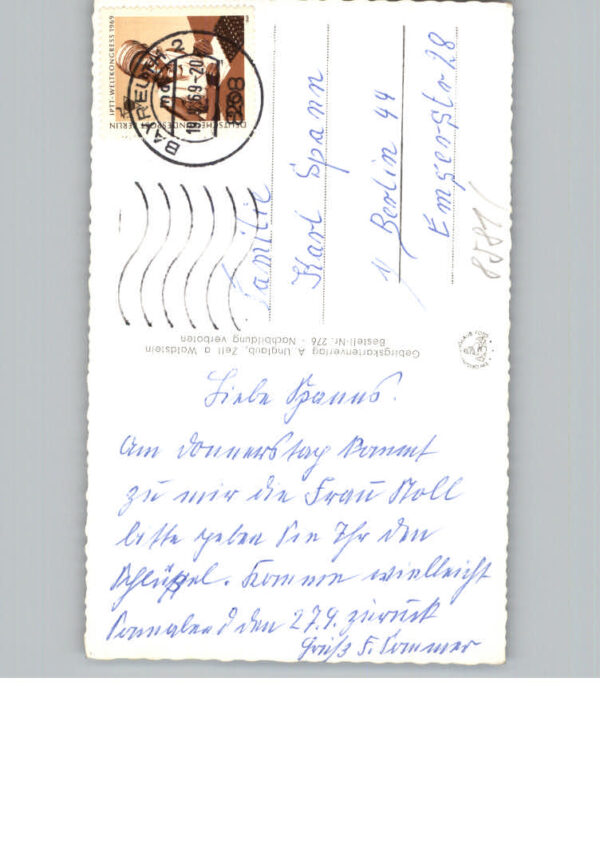 Liebe Spanns.
Am Donnerstag kommt
zu mir die Frau Noll
bitte geben Sie Ihr den
Schlüssel. Kommen vielleicht
Sonnabend den 27.9. zurück
Gruß F. Sommer
Familie
Karl Spann
1/ Berlin 44
Emserstr 28
8581/
Gebirgskartenverlag A. Unglaub, Zell a. Waldstein
Bestell-Nr. 276 - Nachbildung verboten
IPTT-WELTKONGRESS 1969
DEUTSCHE BUNDESPOST BERLIN
BAYREUTH 2